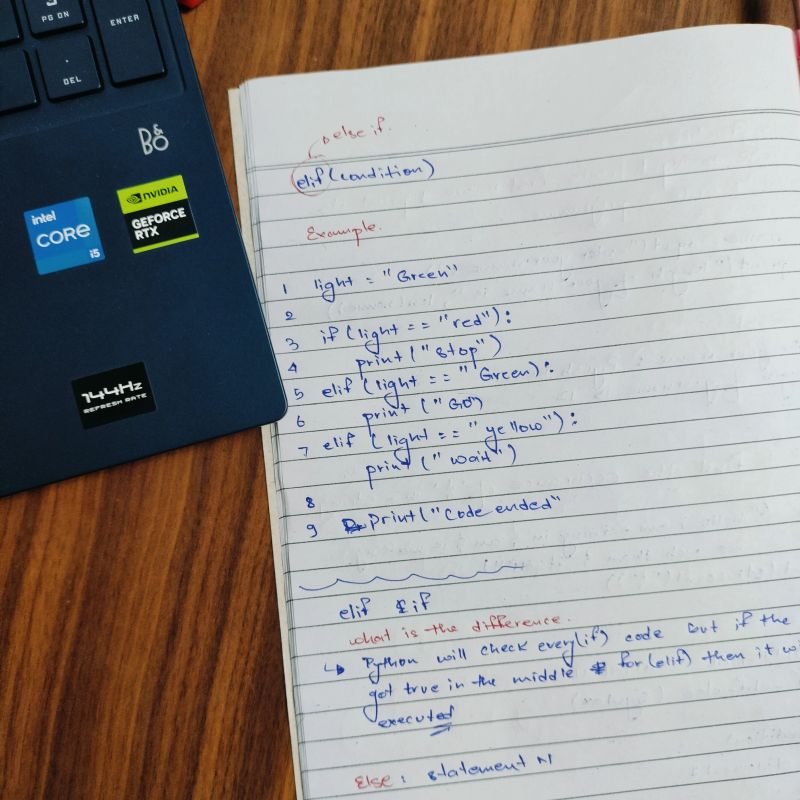 PG DN
ENTER
DEL
B&O
intel
CORE
i5
NVIDIA
GEFORCE
RTX
144Hz
REFRESH RATE
else if.
elif (condition)
Example.
1 light = "Green"
2
3 if (light == "red"):
4 print ("stop")
5 elif (light == "Green):
6 print ("GO)
7 elif (light == "yellow"):
print ("wait")
8
9 Print("Code ended"
elif & if
what is the difference.
↳ Python will check every(if) code but if the
got true in the middle for (elif) then it
executed
Else: statement N